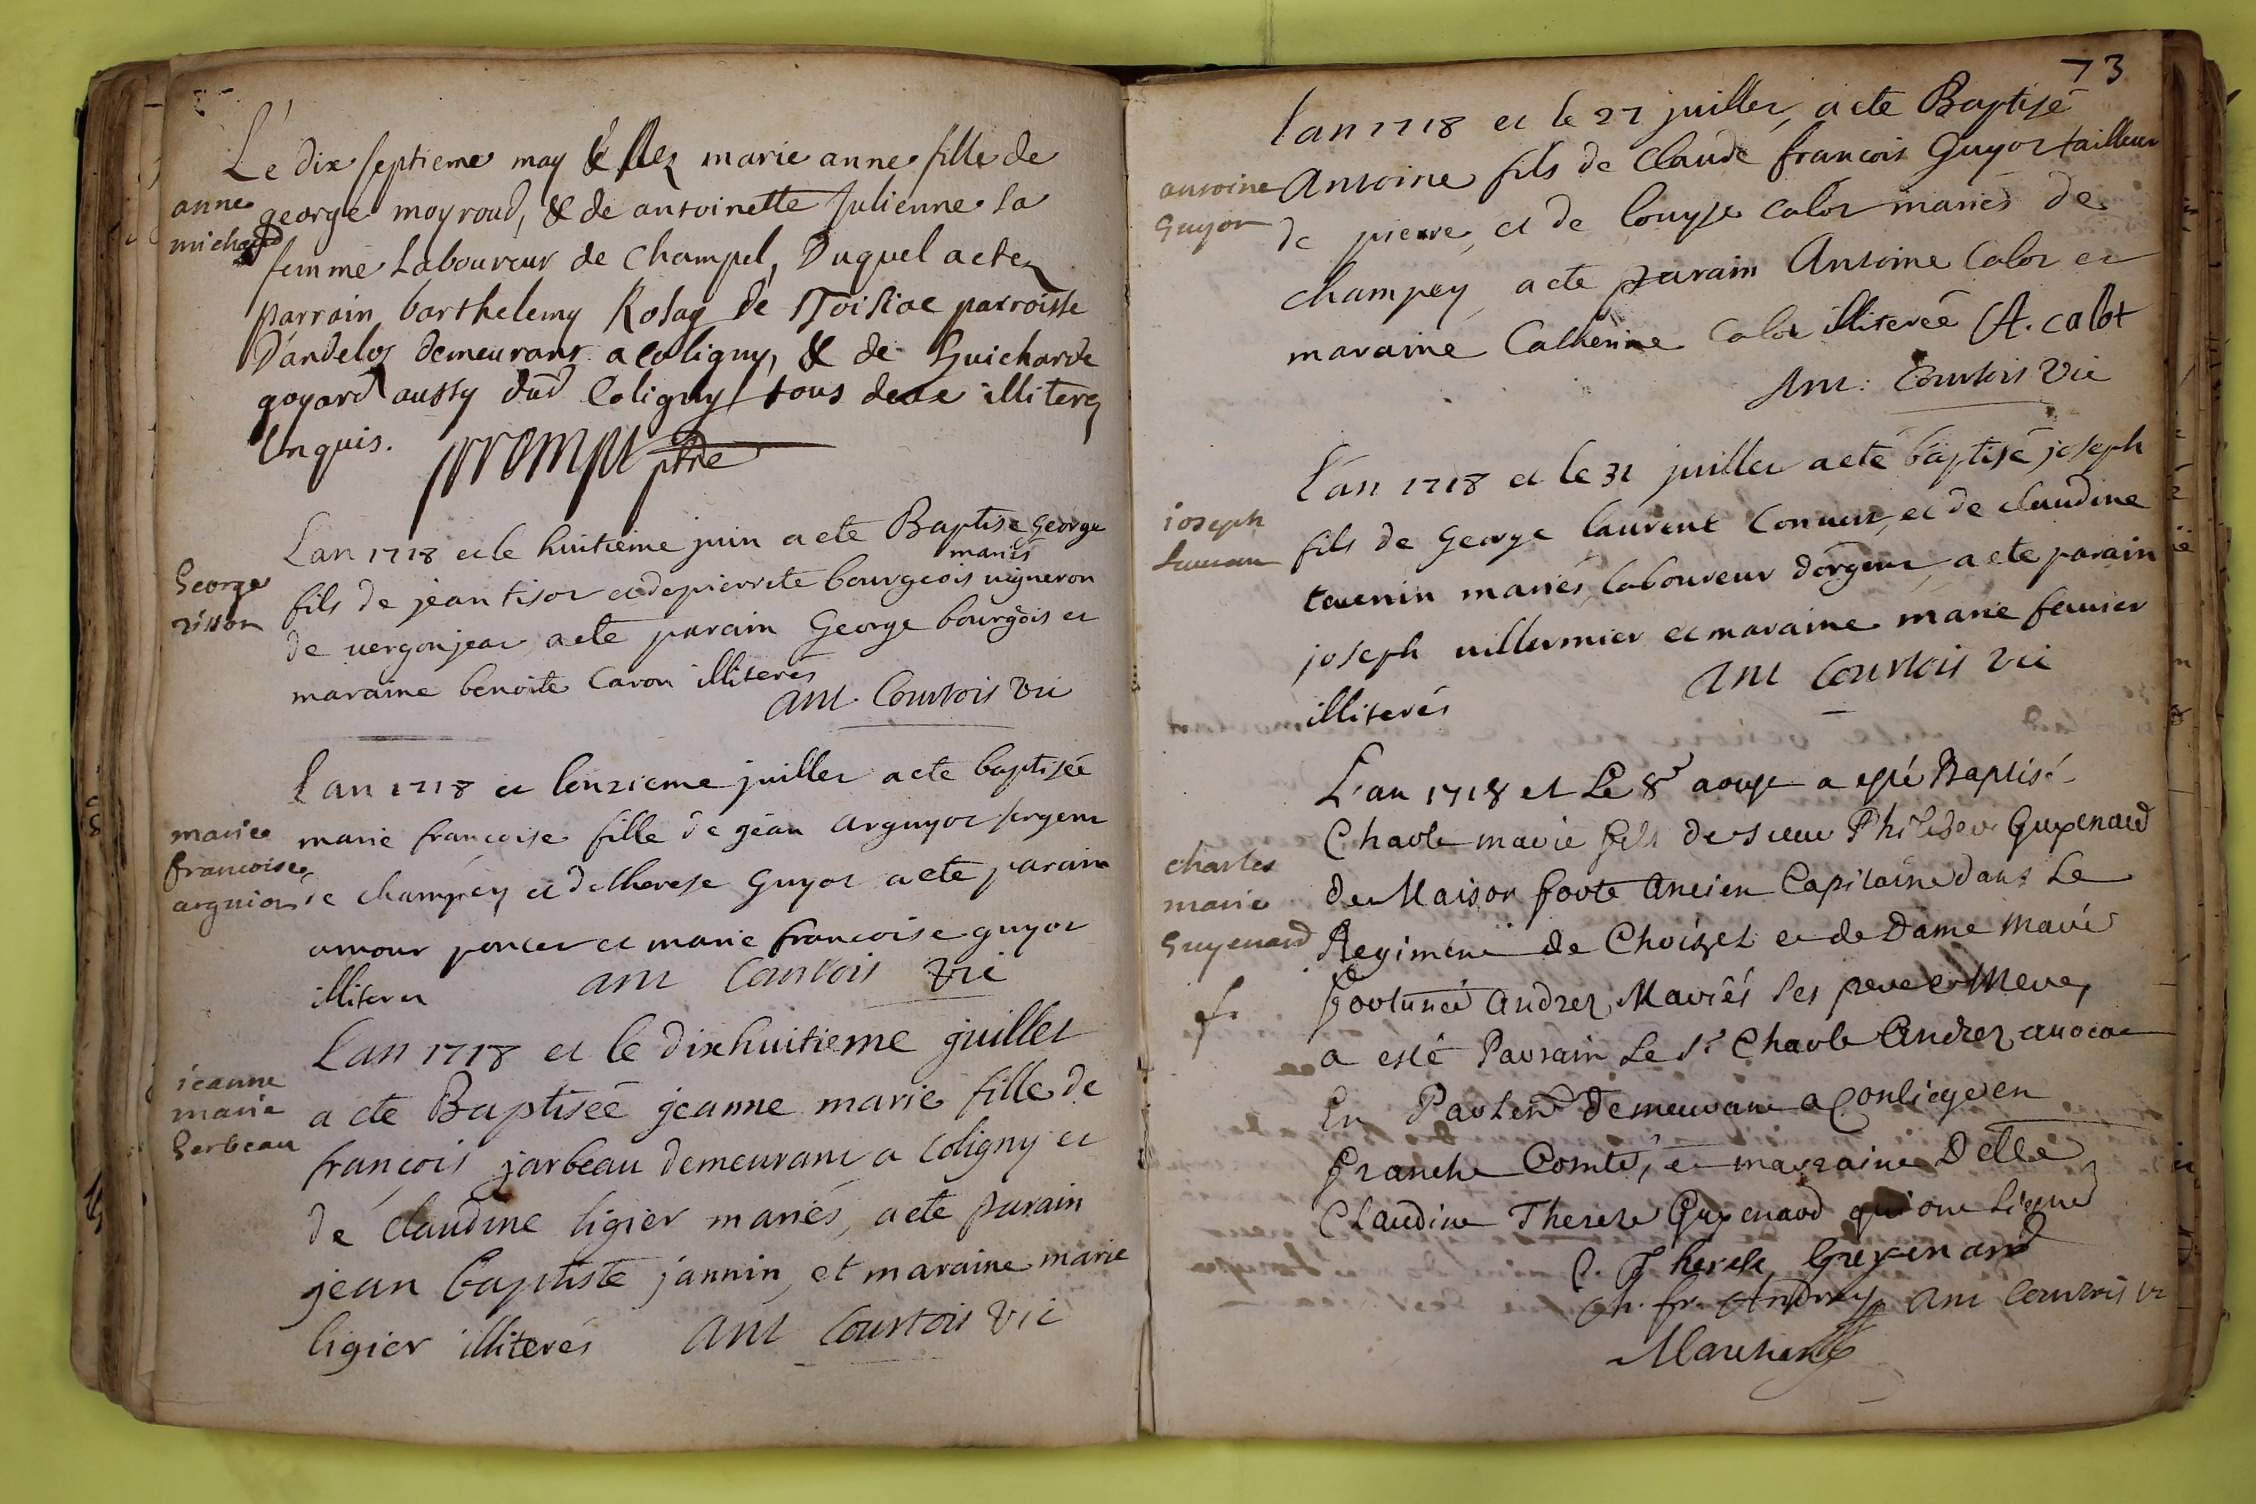 Le dix septieme may & nez marie anne fille de
anne
michard
george moyroud, & de antoinette Julienne sa
femme Laboureur de Champel, Duquel a ete
parrain barthelemy Rosay de Toisiac parroisse
D'andeloz demeurant a coligny, & de Guicharde
goyard aussy dud Coligny tous deux illiterez
Enquis. prompt ptre
Lan 1718 et le huitieme juin a ete Baptisé George
George
tissot
fils de jean tisot et de pierrete bourgeois mariés vigneron
de vergonjeat, a ete parain George bourgois et
maraine benoite Caron illiterés
ant. Courtois vic
Lan 1718 et lonzieme juillet a ete baptisée
marie
francoise
arguiot
marie francoise fille de géan arguyot sergent
de champéy et de therese Guyot a ete parain
amour poncet et marie francoise guyot
illiterez ant Courtois vic
Lan 1718 et le dixhuitieme juillet
jeanne
marie
Gerbeau
a ete Baptiseé jeanne marie fille de
françois jarbeau demeurant a Coligny et
de Claudine ligier mariés, a ete parain
jean baptiste jannin, et maraine marie
ligier illiterés ant Courtois vic
73
lan 1718 et le 27 juillet, a ete Baptisé
antoine
Guyot
Antoine fils de Claude francois Guyot tailleur
de pierre, et de louyse calot mariés de
champey, a ete parain Antoine Calot et
maraine Catherine Calot illitereé A. calot
Ant. Courtois vic
L'an 1718 et le 31 juillet a eté baptisé joseph
joseph
fils de George laurent Convert, et de claudine
tavenin mariés, laboureur dorgent, a ete parain
joseph villermier et maraine marie fevrier
illiterés ant Courtois vic
L'an 1718 et Le 8e aoust a esté Baptisé
charles
marie
Guyenard
f.
Charle marie fils de sieur Philiber Guyenard
de Maison forte ancien Capitaine dans Le
Regiment de Choizet et de Dame marie
fortuneé andrez Mariés ses pere et Mere,
a esté Parrain Le Sr Charle Andrez avocat
En Parlent demeurant a Conliege en
franche Comté, et marraine Delle
Claudine Therese Guyenard qui ont signé
C. Therese Guyenard
ch. fr. Andrey ant Courtois vi
Marchand